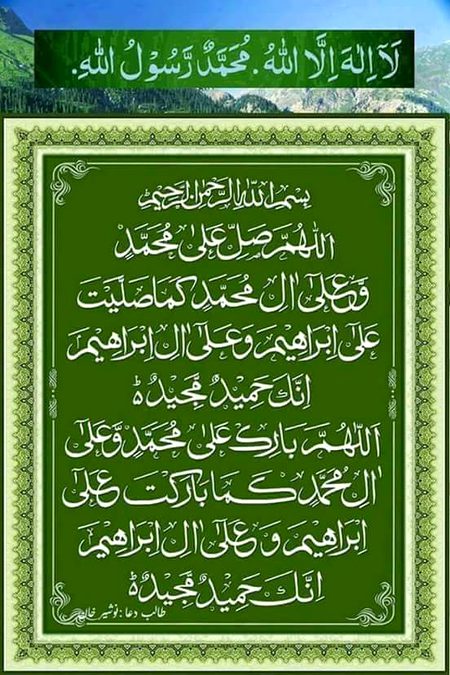 لَآ اِلٰهَ اِلَّا اللهُ. مُحَمَّدٌ رَّسُوْلُ اللهِ.
بِسْمِ اللهِ الرَّحْمٰنِ الرَّحِيْمِ
اَللّٰهُمَّ صَلِّ عَلٰى مُحَمَّدٍ
وَّعَلٰٓى اٰلِ مُحَمَّدٍ كَمَا صَلَّيْتَ
عَلٰٓى اِبْرَاهِيْمَ وَعَلٰٓى اٰلِ اِبْرَاهِيْمَ
اِنَّكَ حَمِيْدٌ مَّجِيْدٌ ہ
اَللّٰهُمَّ بَارِكْ عَلٰى مُحَمَّدٍ وَّعَلٰٓى
اٰلِ مُحَمَّدٍ كَمَا بَارَكْتَ عَلٰٓى
اِبْرَاهِيْمَ وَعَلٰٓى اٰلِ اِبْرَاهِيْمَ
اِنَّكَ حَمِيْدٌ مَّجِيْدٌ ہ
طالب دعا: نوشیر خان